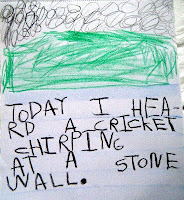 TODAY I HEA-
RD A CRICKET
CHIRPING
AT A STONE
WALL.